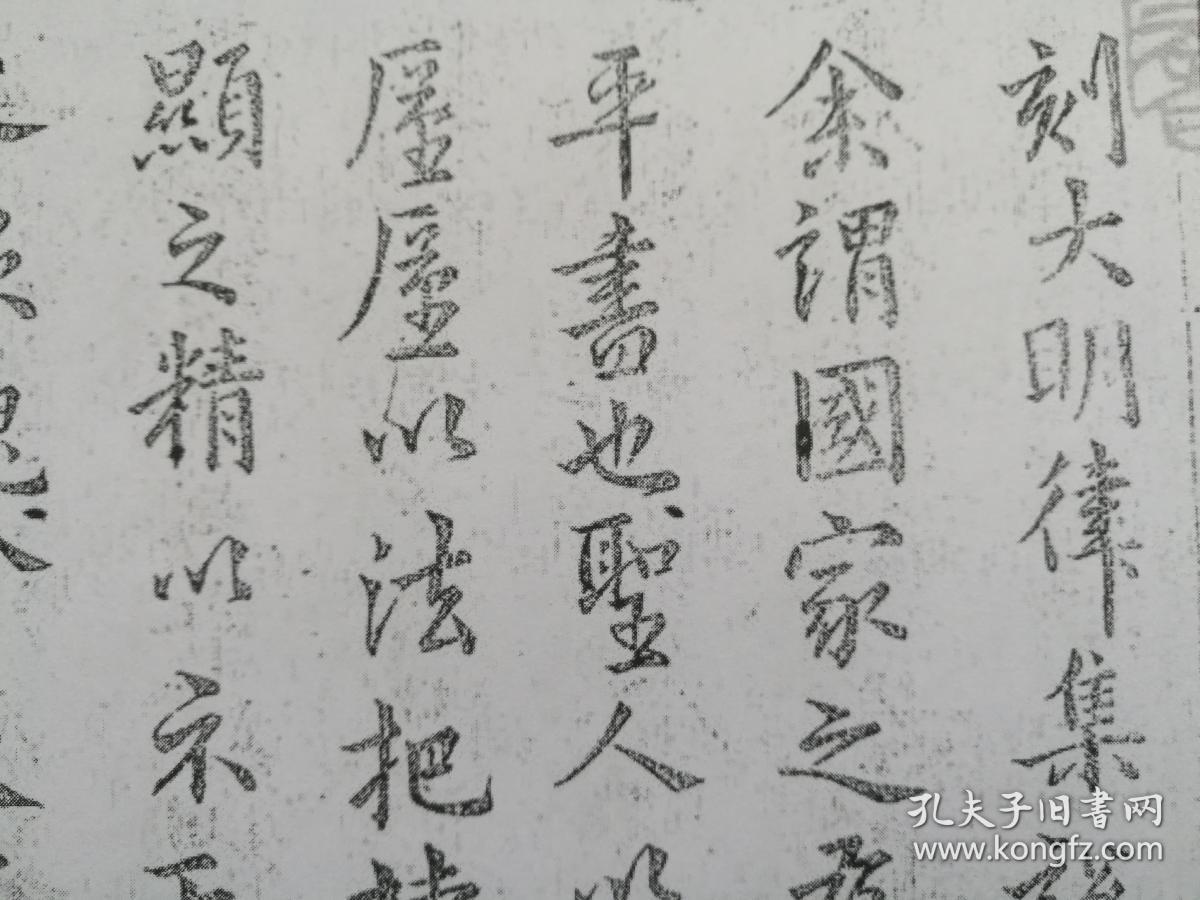 刻大明律集
余謂國家之
平書也聖人以
屋屋以法把持
顯之精以示下
孔夫子旧書网
www.kongfz.com